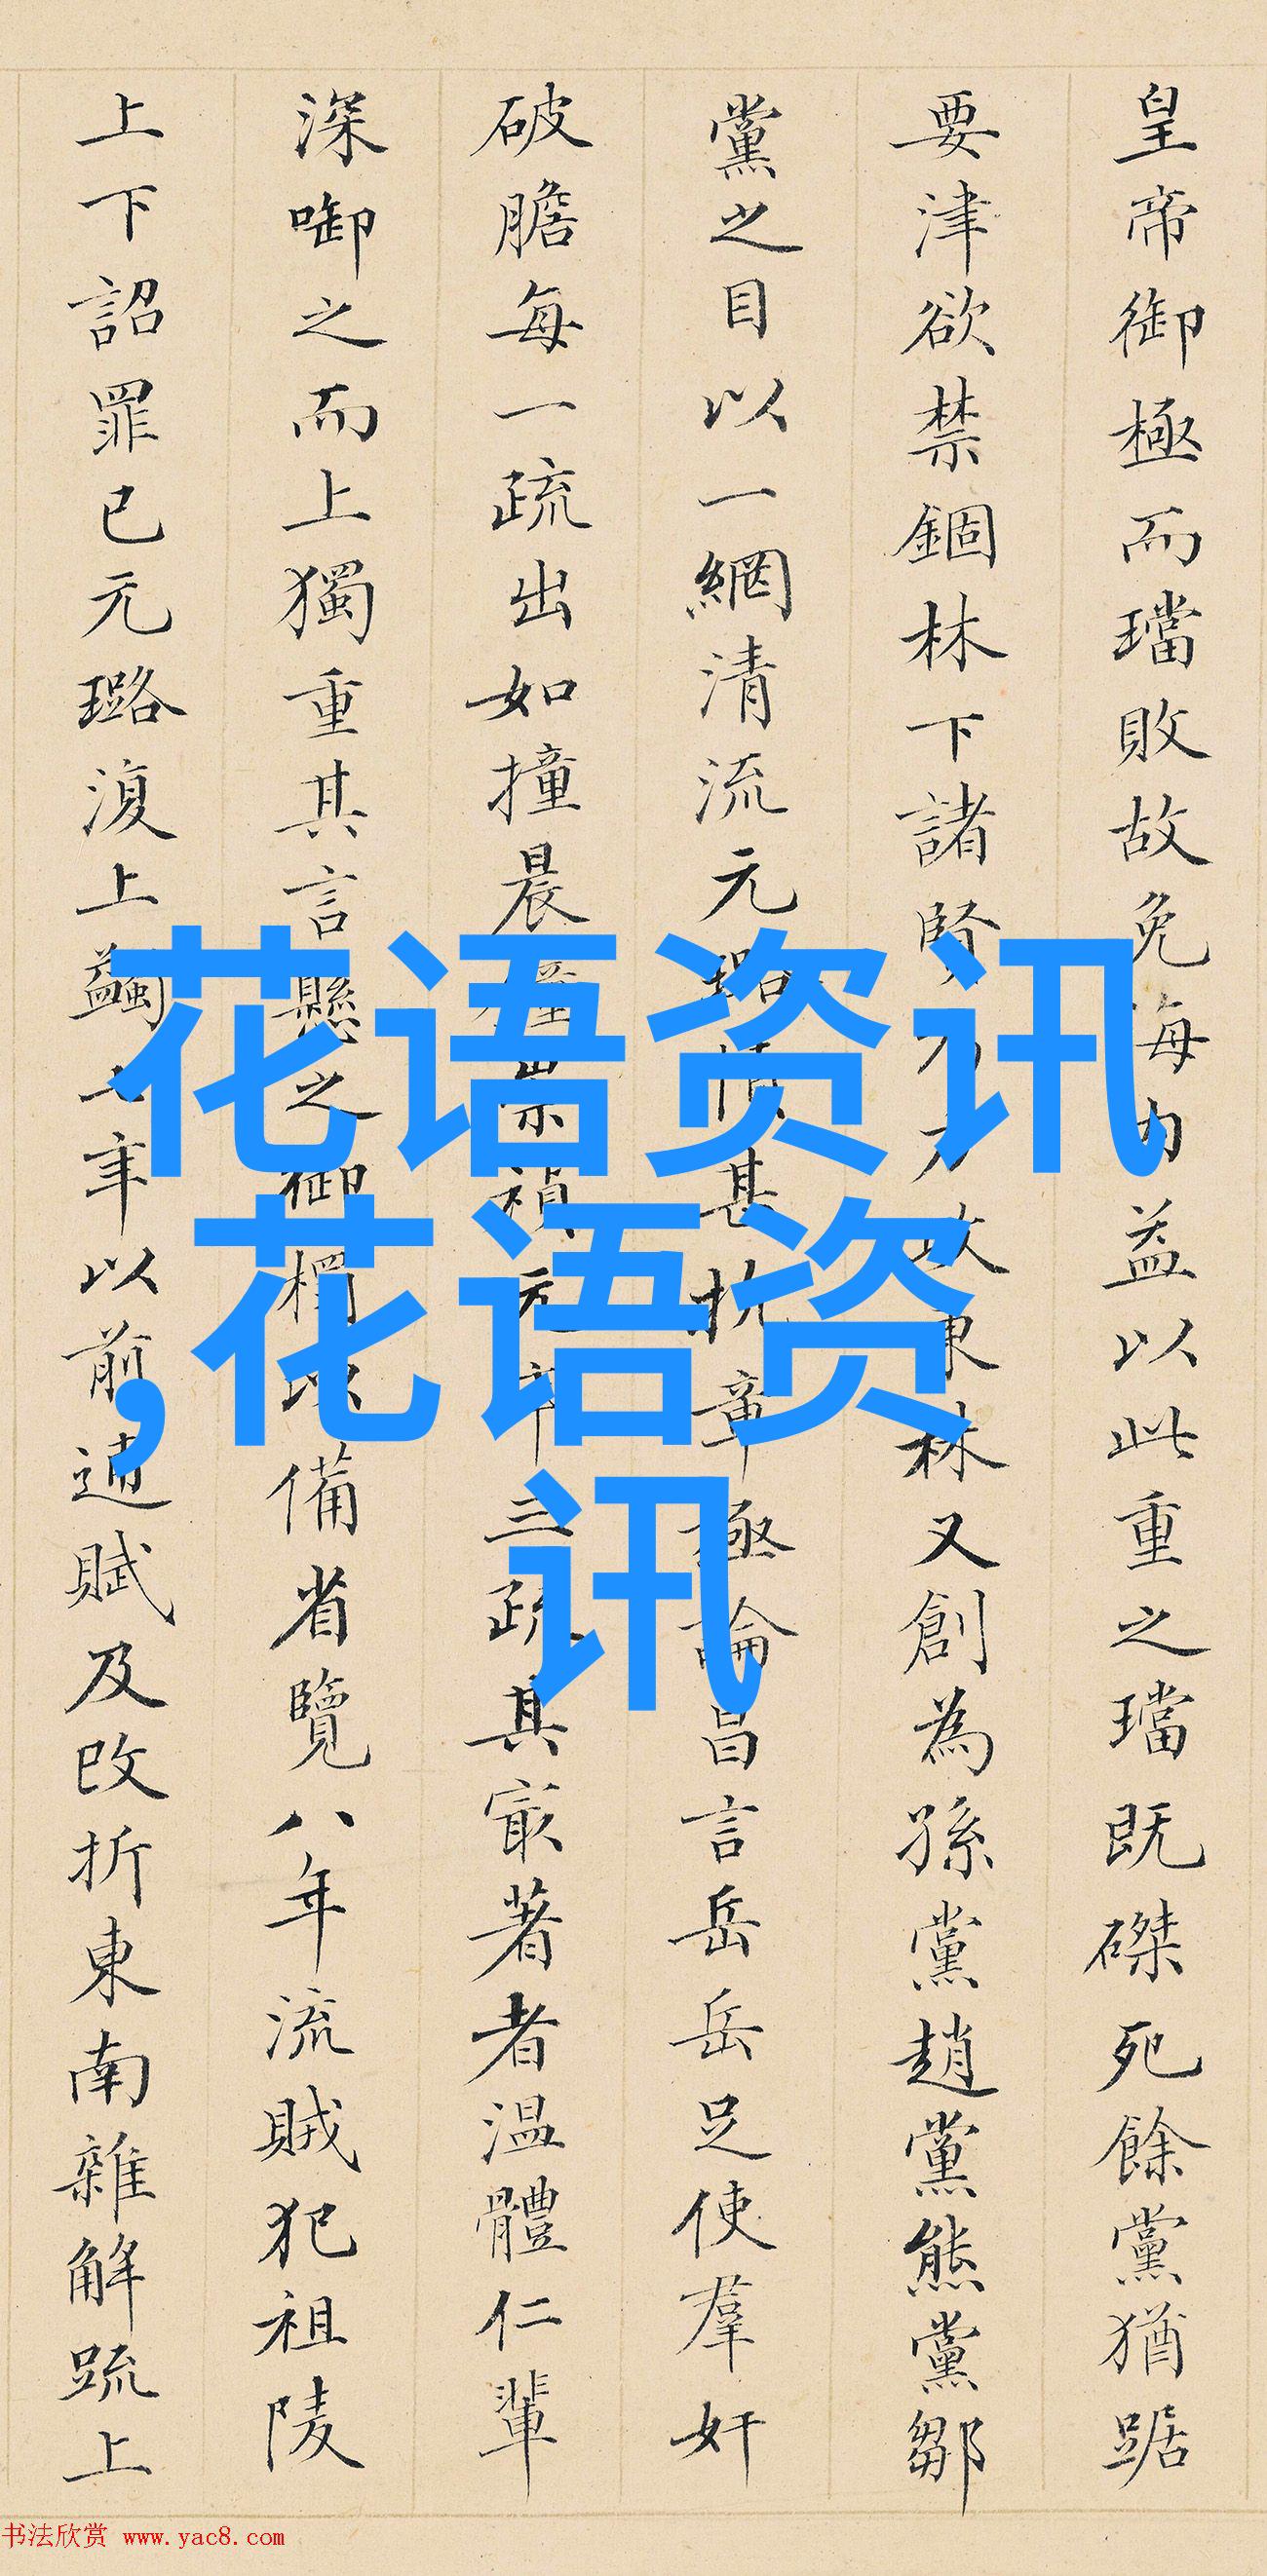 皇帝御極而璫敗故免海内益以此重之璫既磔死餘黨猶踞
要津欲禁錮林下諸賢力攻東林又創為孫黨趙黨熊黨鄒
黨之目以一網清流元璐憤甚抗章極論昌言岳岳足使羣奸
破膽每一疏出如撞晨鐘崇禎元年三疏其最著者溫體仁輩
深啣之而上獨重其言懸之御榻以備省覽八年流賊犯祖陵
上下詔罪已元璐復上蠲七年以前逋賦及改折東南雜解疏上
花语资讯
,花语资
讯
书法欣赏 www.yac8.com